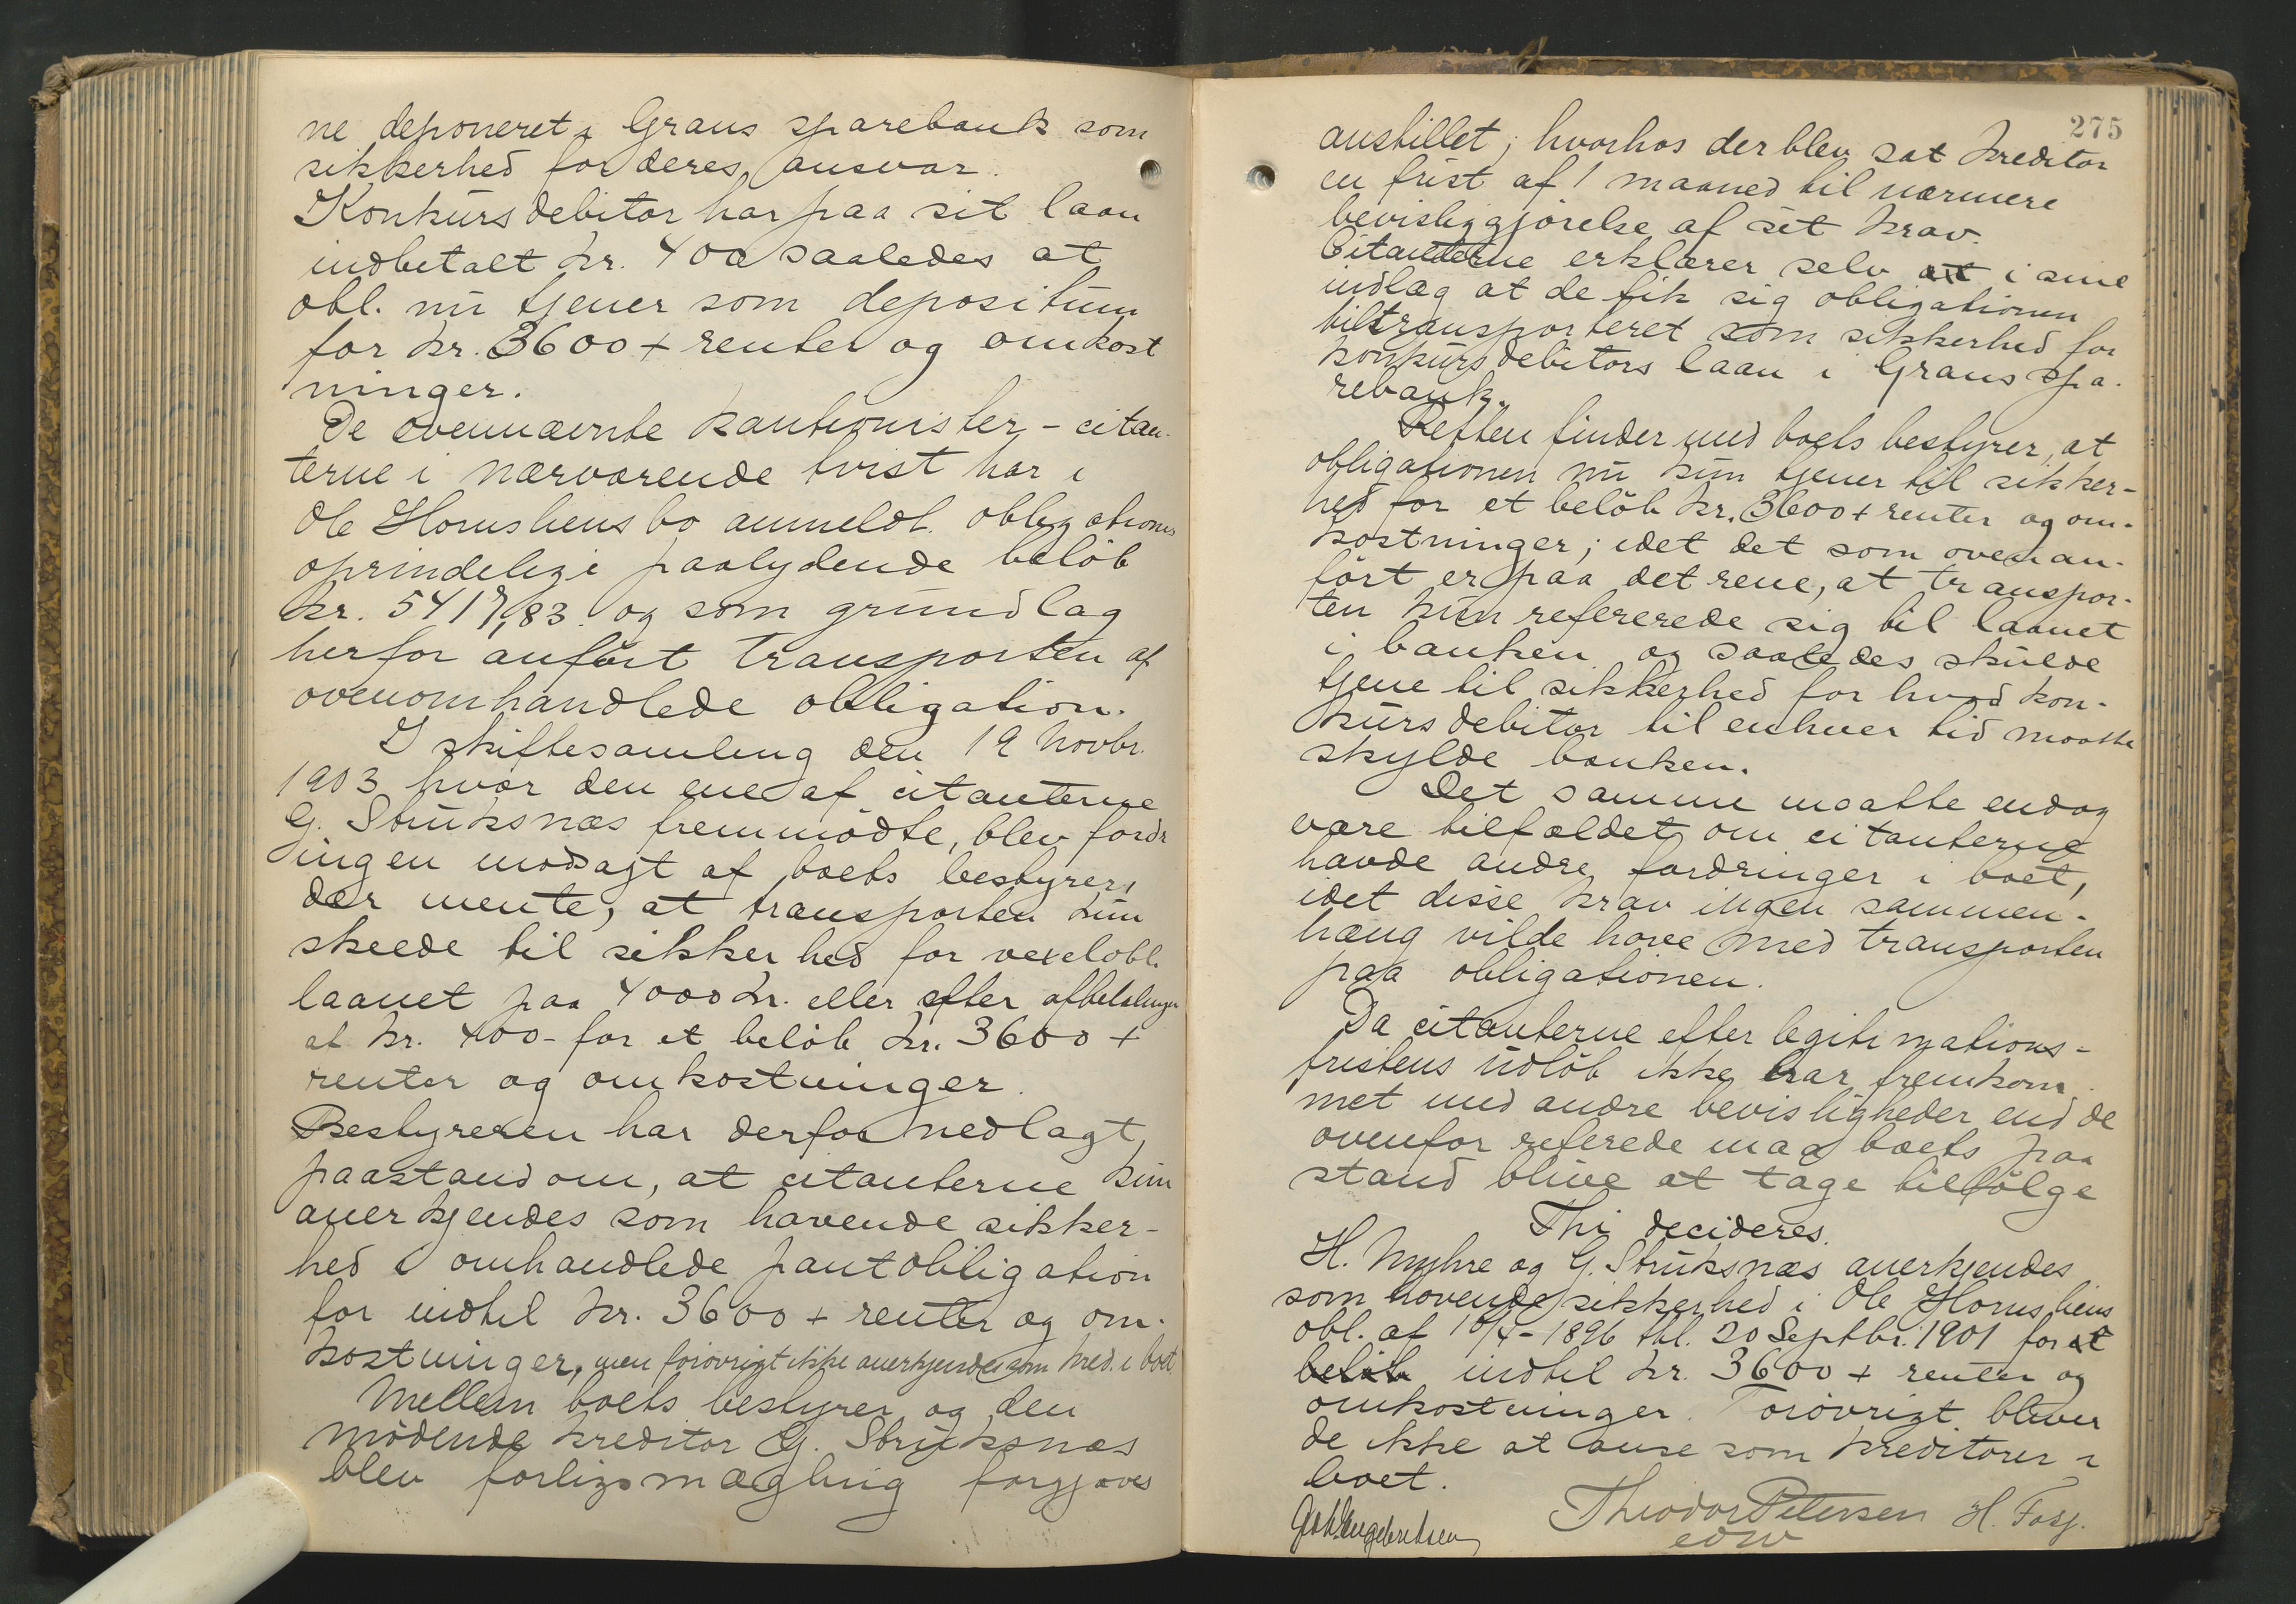 ne deponeret i Grans sparebank som
sikkerhed for deres ansvar.
Konkursdebitor har paa sit laan
indbetalt kr. 400 saaledes at
obl. nu tjener som depositum
for kr. 3600 + renter og omkost
ninger.
De ovennævnte kautionister - citan-
terne i nærværende tvist har i
Ole Hornsliens bo anmeldt obligationens
oprindelige paalydende beløb
kr. 5417,83 og som grundlag
herfor anført transporten af
ovenomhandlede obligation.
I skiftesamling den 19 Novbr.
1903 hvor den ene af citanterne
G. Struksnæs fremmødte, blev fordr
ingen modsagt af boets bestyrer,
der mente, at transporten kun
skeede til sikkerhed for vexelobl.
laanet paa 4000 kr. eller efter afbetalingen
af kr. 400 - for et beløb kr. 3600 +
renter og omkostninger.
Bestyreren har derfor nedlagt
paastand om, at citanterne kun
anerkjendes som havende sikker-
hed i omhandlede pantobligation
for indtil kr. 3600 + renter og om-
kostninger, men forøvrigt ikke anerkjendes som kred. i boet.
Mellem boets bestyrer og den
mødende kreditor G. Struksnæs
blev forligsmægling forgjæves
275
anstillet; hvorhos der blev sat kreditor
en frist af 1 maaned til nærmere
bevisliggjørelse af sit krav.
Citanterne erklærer selv at i sine
indlæg at de fik sig obligationen
tiltransporteret som sikkerhed for
konkursdebitors laan i Grans spa-
rebank.
Retten finder med boets bestyrer, at
obligationen nu kun tjener til sikker-
hed for et beløb kr. 3600 + renter og om-
kostninger; idet det som ovenan-
ført er paa det rene, at transpor-
ten kun refererede sig til laanet
i banken og saaledes skulde
tjene til sikkerhed for hvad kon-
kursdebitor til enhver tid maatte
skylde banken.
Det samme maatte endog
være tilfældet om citanterne
havde andre fordringer i boet,
idet disse krav ingen sammen-
hæng vilde have med transporten
paa obligationen.
Da citanterne efter legitimations-
fristens udløb ikke har fremkom
met med andre bevisligheder end de
ovenfor referede maa boets paa
stand blive at tage tilfølge
Thi decideres.
H. Myhre og G. Struksnæs anerkjendes
som havende sikkerhed i Ole Hornsliens
obl. af 10/4-1896 thl. 20 Septbr. 1901 for et
beløb indtil kr. 3600 + renter og
omkostninger. Forøvrigt bliver
de ikke at anse som kreditorer i
boet.
Theodor Petersen H. Fosj.
Joh. Engebretsen
edw